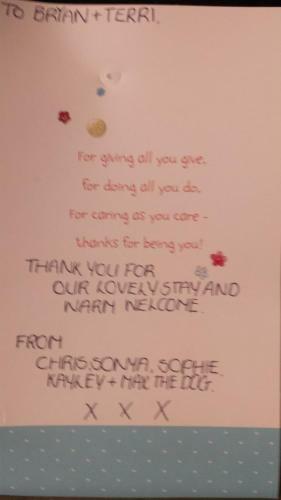 TO BRYAN + TERRI.
For giving all you give,
for doing all you do,
For caring as you care -
thanks for being you!
THANK YOU FOR
OUR LOVELY STAY AND
WARM WELCOME.
FROM
CHRIS, SONYA, SOPHIE
KAYLEY + MAX THE DOG.
X X X